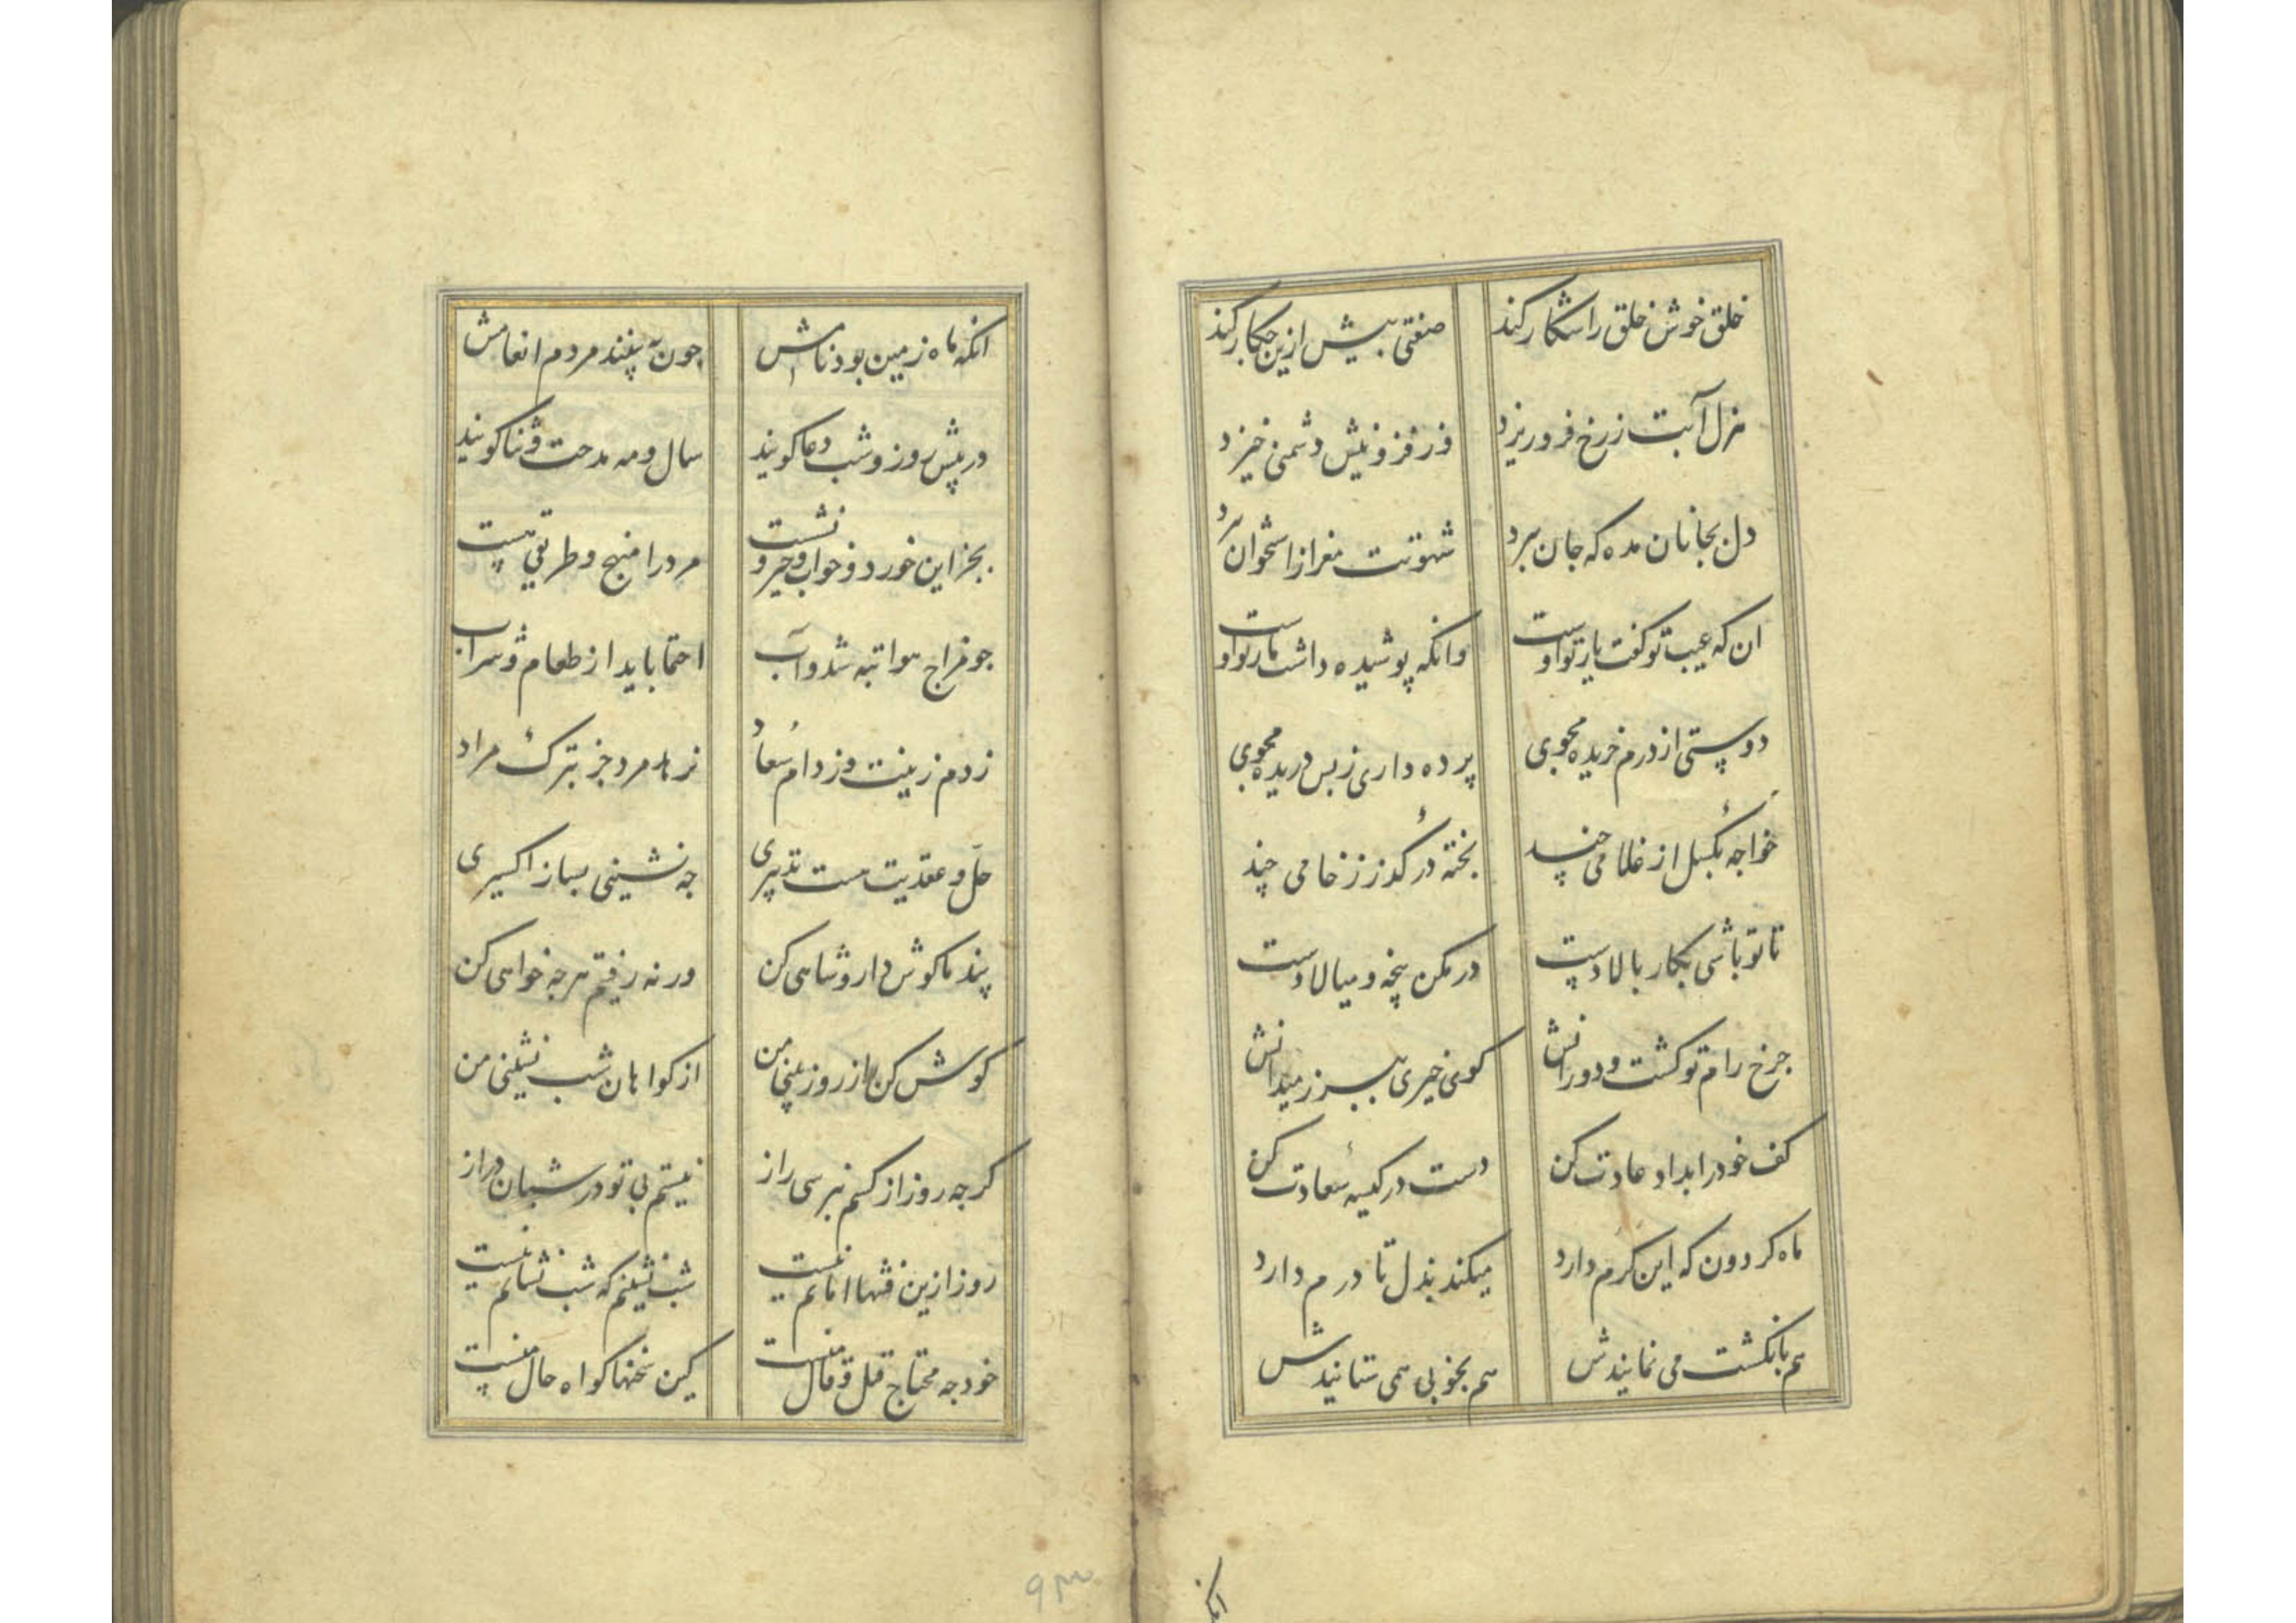 خلق خوش خلق را شکار کند
صنعتی بیش ازین چکار کند
هزل آبت ز رخ فرو ریزد
وز فزونیش دشمنی خیزد
دل بجانان مده که جان ببرد
شهوتت مغز از استخوان ببرد
ان که عیب تو گفت یار تو اوست
وانکه پوشیده داشت مار تو اوست
دوستی از درم خریده مجوی
پرده داری ز پس دریده مجوی
خواجه بگسل از غلامی چند
پخته در گذر ز خامی چند
تا تو باشی بکار بالا دست
در مکن پنجه و میالا دست
چرخ رام تو گشت و دورانش
گوی خیری ببر ز میدانش
کف خود را بداد عادت کن
دست در کیسه سعادت کن
ماه گردون که این کرم دارد
میکند بذل تا درم دارد
هم بانگشت می نمایندش
هم بخوبی همی ستایندش
انکه
انکه ماه زمین بود نامش
چون به بینند مردم انعامش
در پیش روز و شب دعا گویند
سال و مه مدحت و ثنا گویند
بجز این خورد و خواب و خیز و نشست
مرد را منهج و طریقی هست
چو مزاج هوا تبه شد و آب
احتما باید از طعام و شراب
زدم زینت و ز دام سعاد
نرهد مرد جز بترک مراد
حل و عقدیت هست تدبیری
چه نشینی بساز اکسیری
پند ما گوش دار و شاهی کن
ورنه رفتم هر چه خواهی کن
گوش کن راز روز بینی من
از گواهان شب نشینی من
گر چه روز از کسم نپرسی راز
نیستم بی تو در شبان دراز
روز ازین فتنها امانم نیست
شب نشینم که شب نشانم نیست
خود چه محتاج قیل و قال منست
کین سخنها گواه حال منست
۹۳